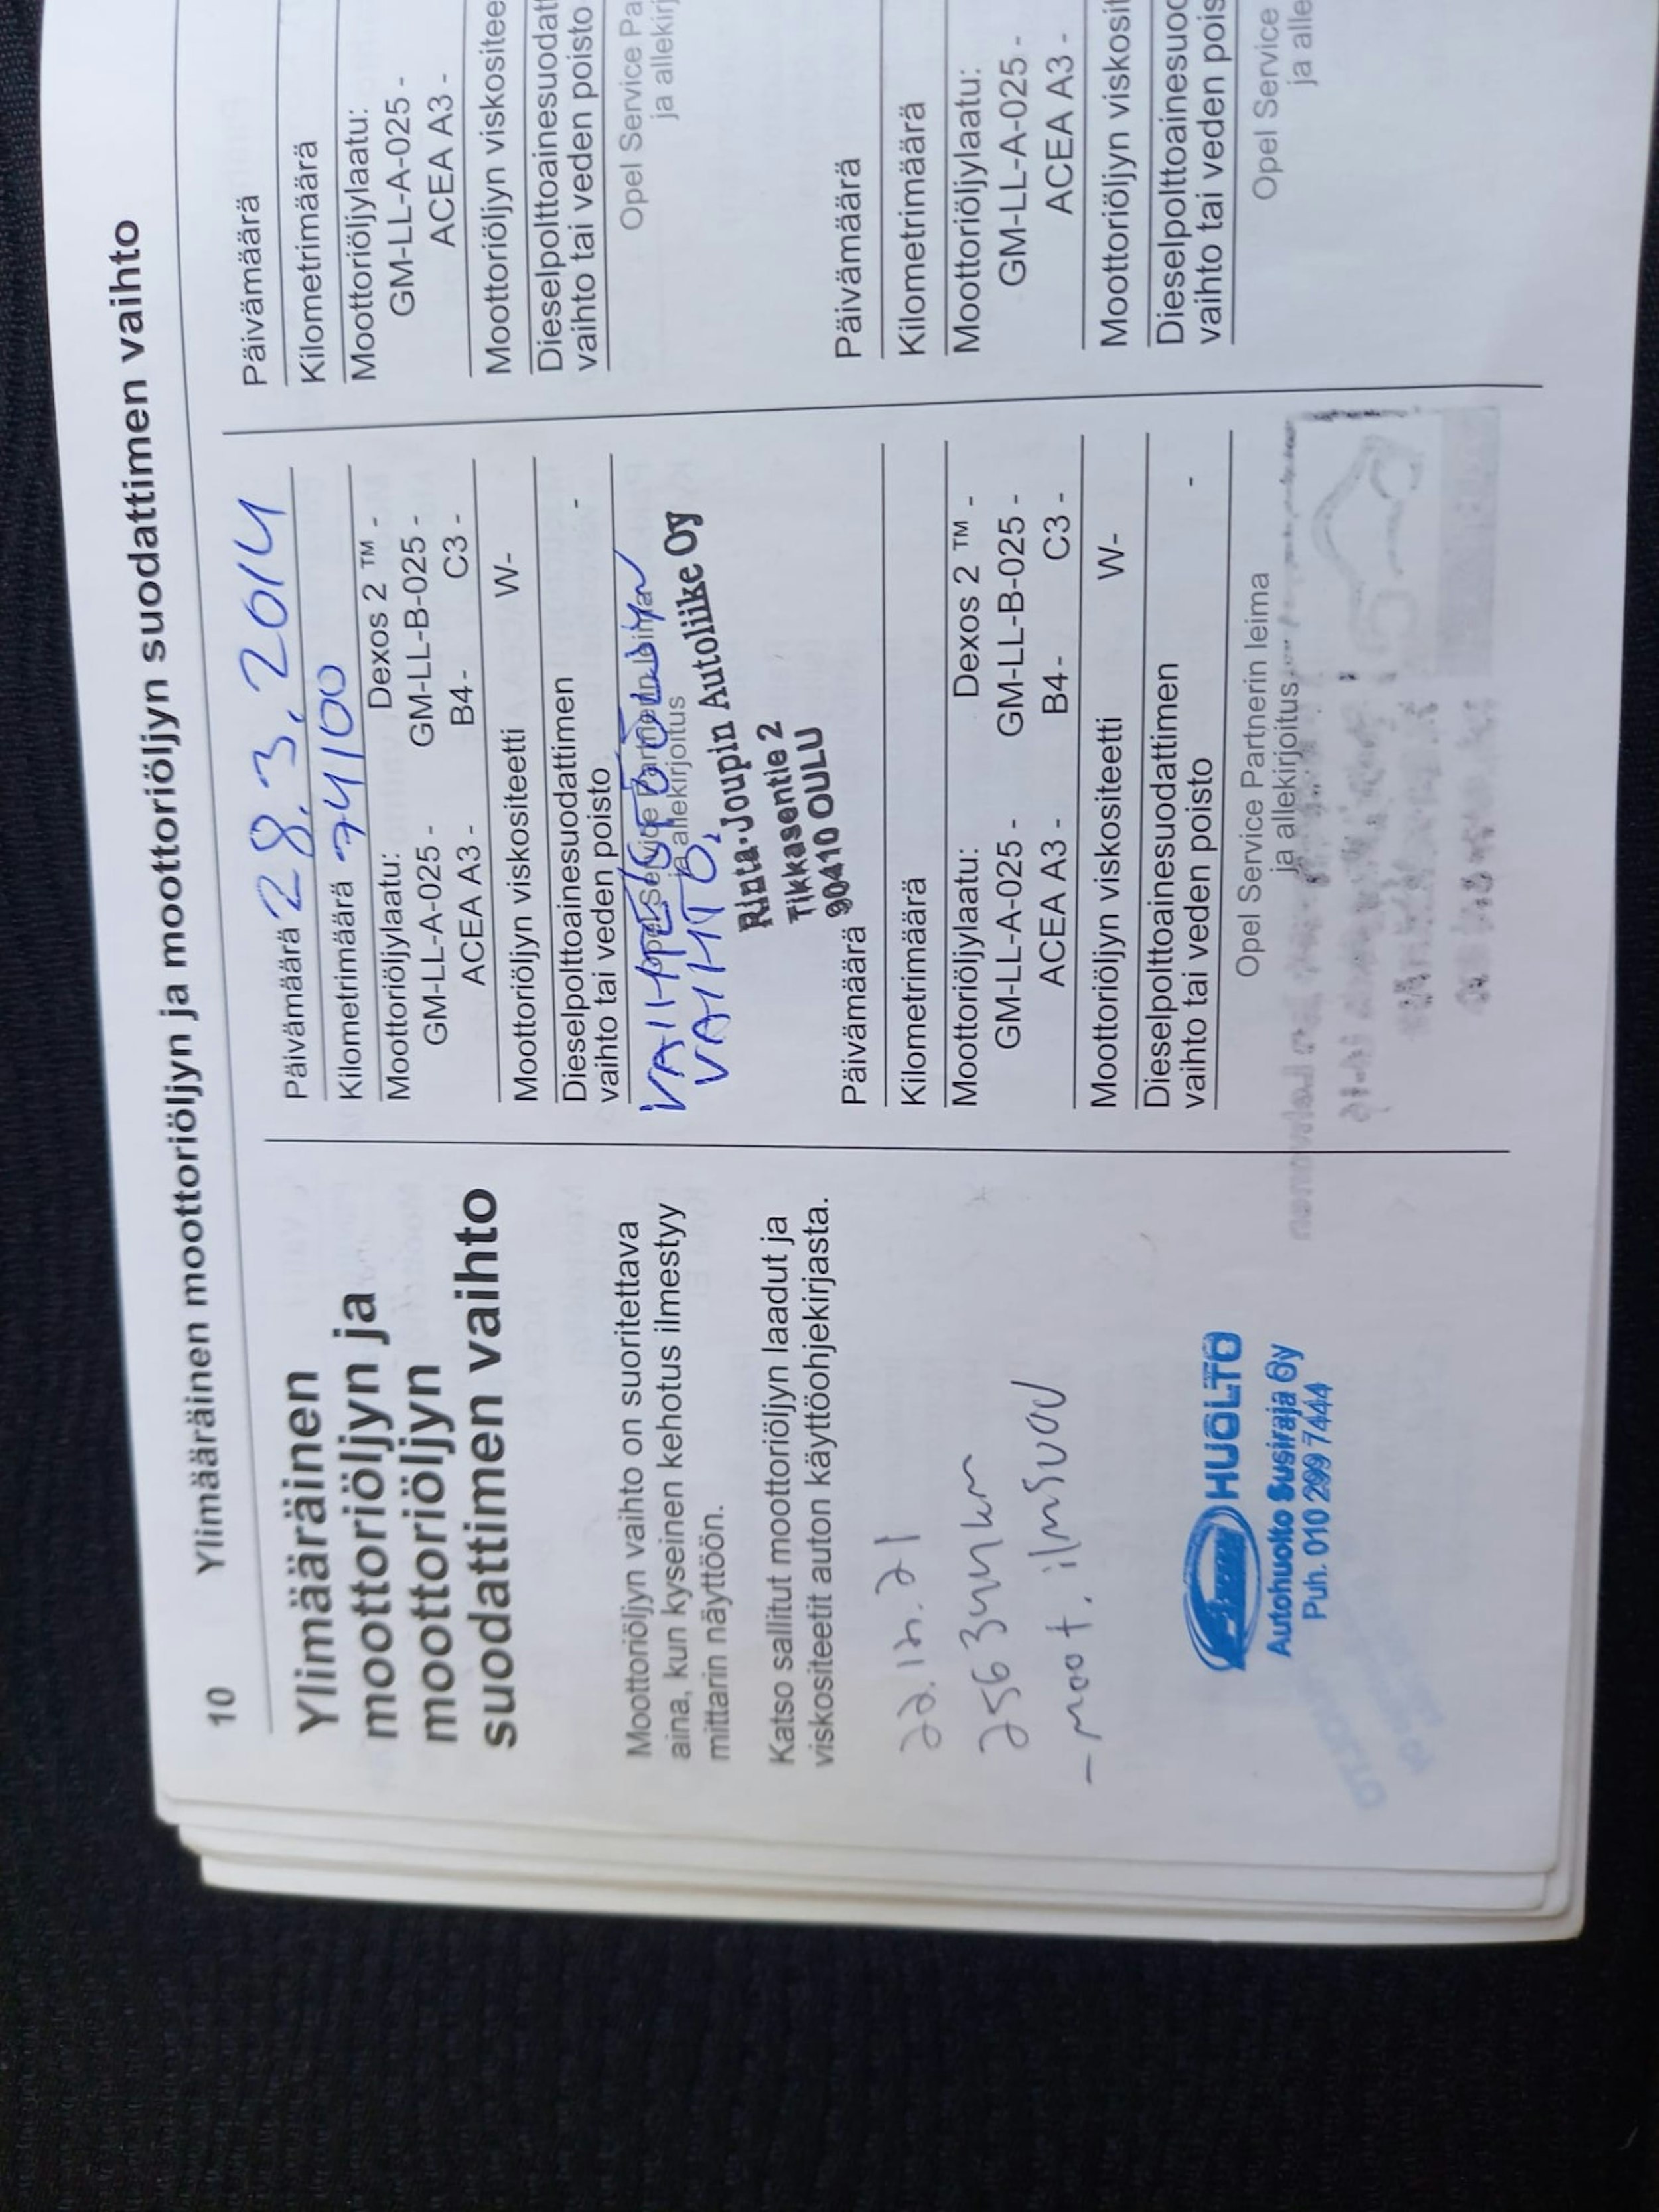 10 Ylimääräinen moottoriöljyn ja moottoriöljyn suodattimen vaihto
Ylimääräinen
moottoriöljyn ja
moottoriöljyn
suodattimen vaihto
Moottoriöljyn vaihto on suoritettava
aina, kun kyseinen kehotus ilmestyy
mittarin näyttöön.
Katso sallitut moottoriöljyn laadut ja
viskositeetit auton käyttöohjekirjasta.
22.12.21
- moot. ilmsuod
HUOLTO
Autohuolto Susiraja Oy
Puh. 010 299 7444
Päivämäärä 28.3.2014
Kilometrimäärä 74100
Moottoriöljylaatu: Dexos 2 ™ -
GM-LL-A-025 - GM-LL-B-025 -
ACEA A3 - B4 - C3 -
Moottoriöljyn viskositeetti W-
Dieselpolttoainesuodattimen
vaihto tai veden poisto -
Opel Service Partnerin leima
ja allekirjoitus
VAIHTO.
Rinta-Joupin Autoliike Oy
Tikkasentie 2
90410 OULU
Päivämäärä
Kilometrimäärä
Moottoriöljylaatu: Dexos 2 ™ -
GM-LL-A-025 - GM-LL-B-025 -
ACEA A3 - B4 - C3 -
Moottoriöljyn viskositeetti W-
Dieselpolttoainesuodattimen
vaihto tai veden poisto -
Opel Service Partnerin leima
ja allekirjoitus
Päivämäärä
Kilometrimäärä
Moottoriöljylaatu:
GM-LL-A-025 -
ACEA A3 -
Moottoriöljyn viskositee
Dieselpolttoainesuodat
vaihto tai veden poisto
Opel Service Pa
ja allekirj
Päivämäärä
Kilometrimäärä
Moottoriöljylaatu:
GM-LL-A-025 -
ACEA A3 -
Moottoriöljyn viskosit
Dieselpolttoainesuod
vaihto tai veden pois
Opel Service
ja alle